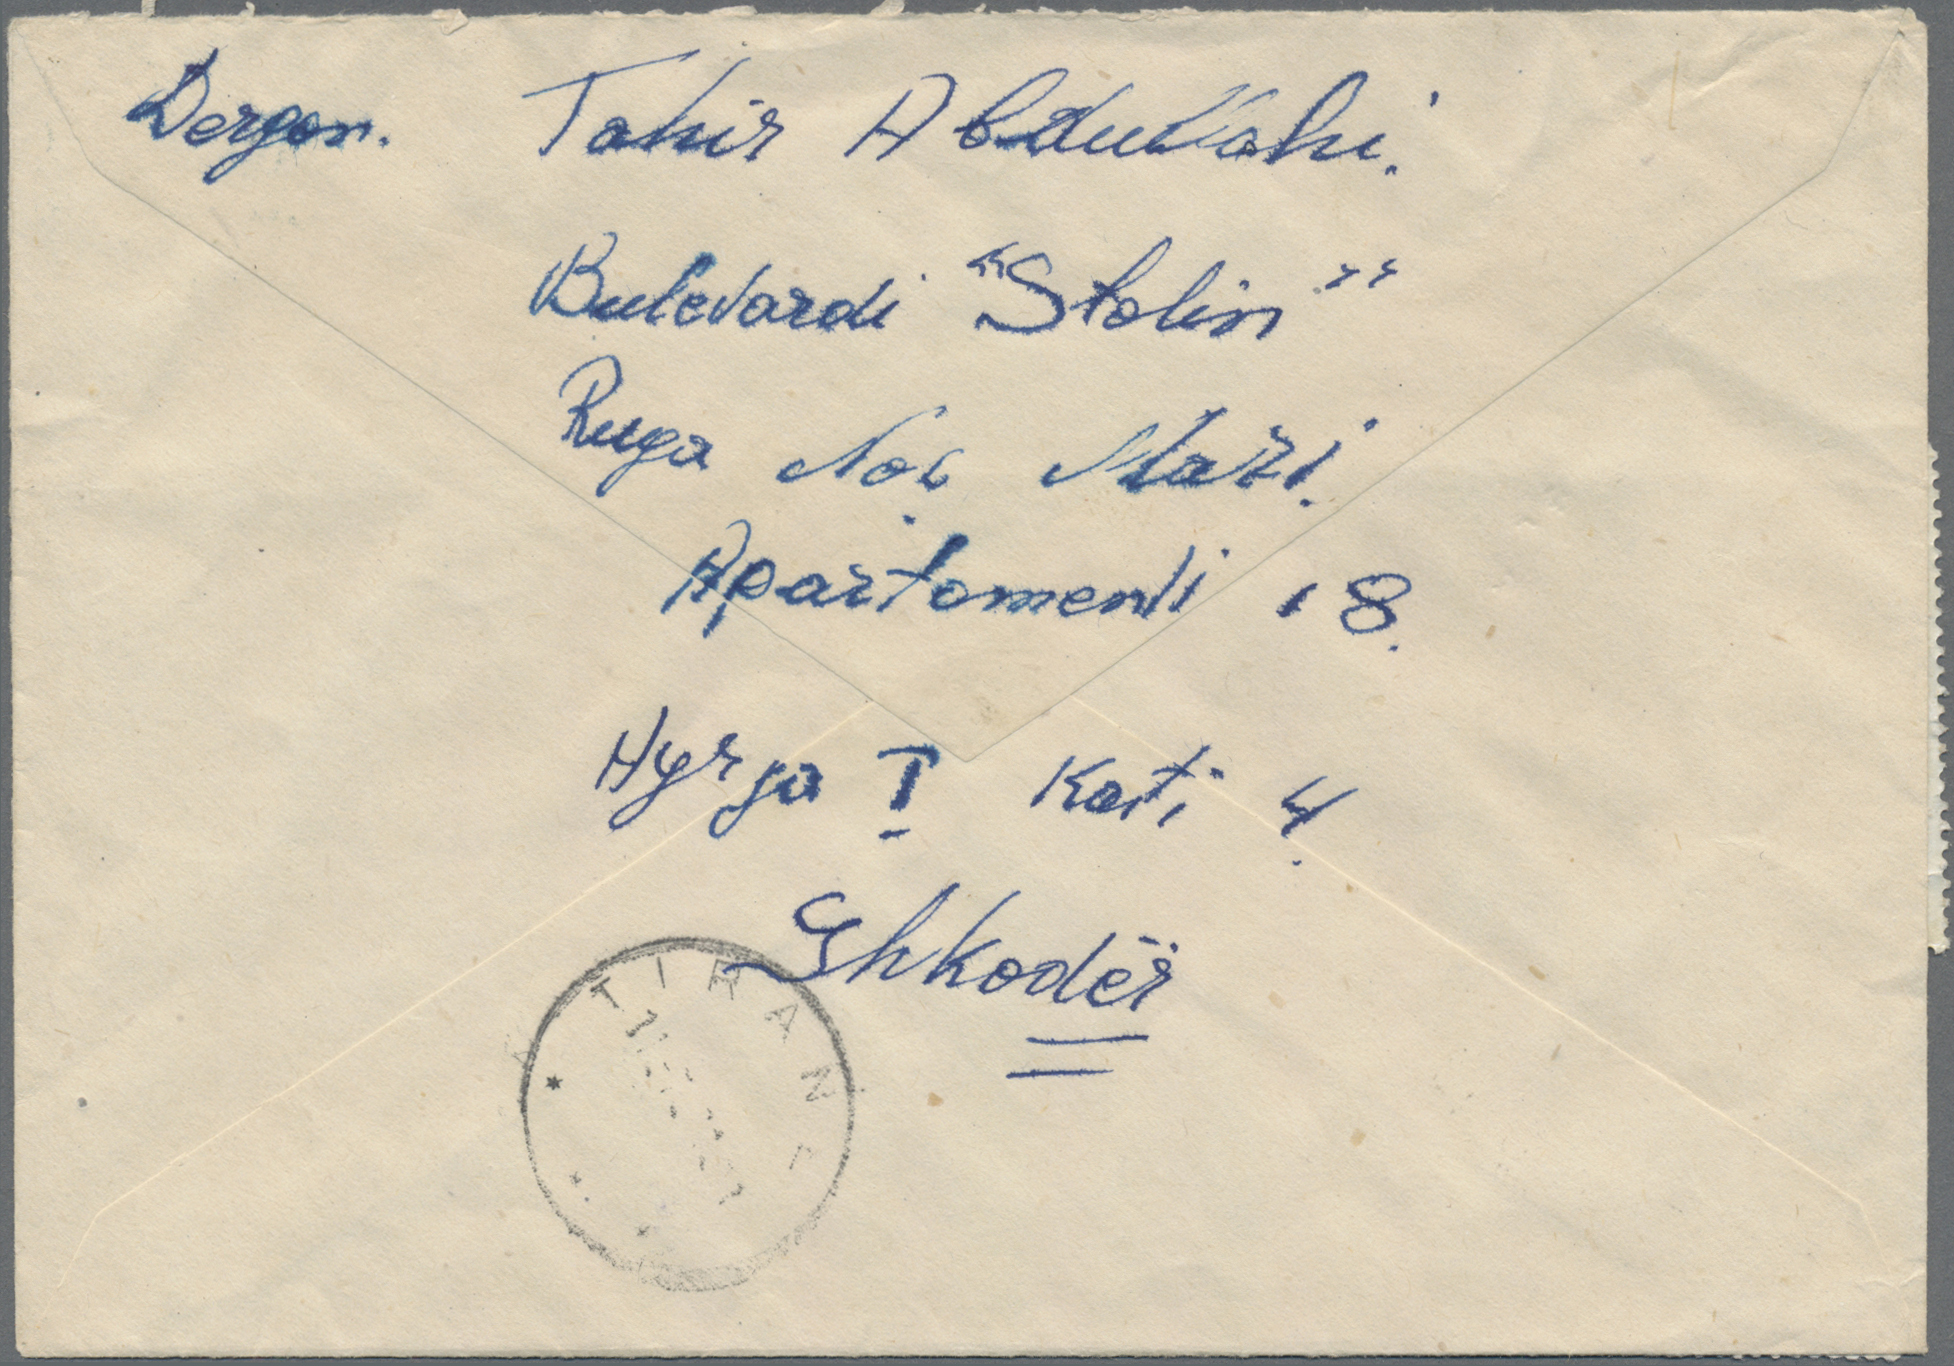 Dergon. Tahir Abdullahi.
Bulevardi "Stalin"
Ruga Noc Mazi.
Apartamenti 18.
Hyrja I Kati 4.
Shkodër
TIRANE